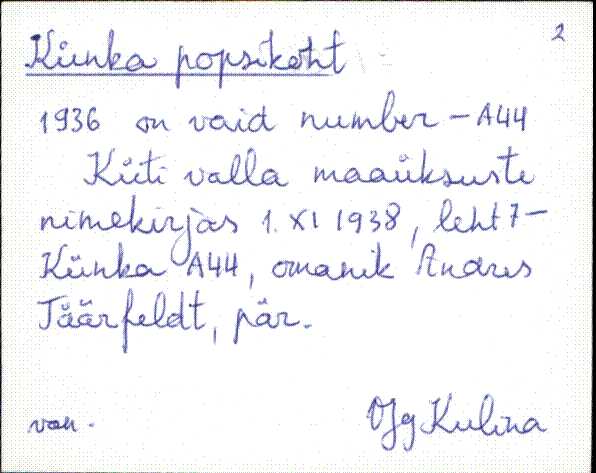 2
Künka popsikoht
1936 on vaid number - A44
Küti valla maaüksuste
nimekirjas 1. XI 1938, leht 7 -
Künka A44, omanik Andres
Täärfeldt, pär.
van.
Kulina